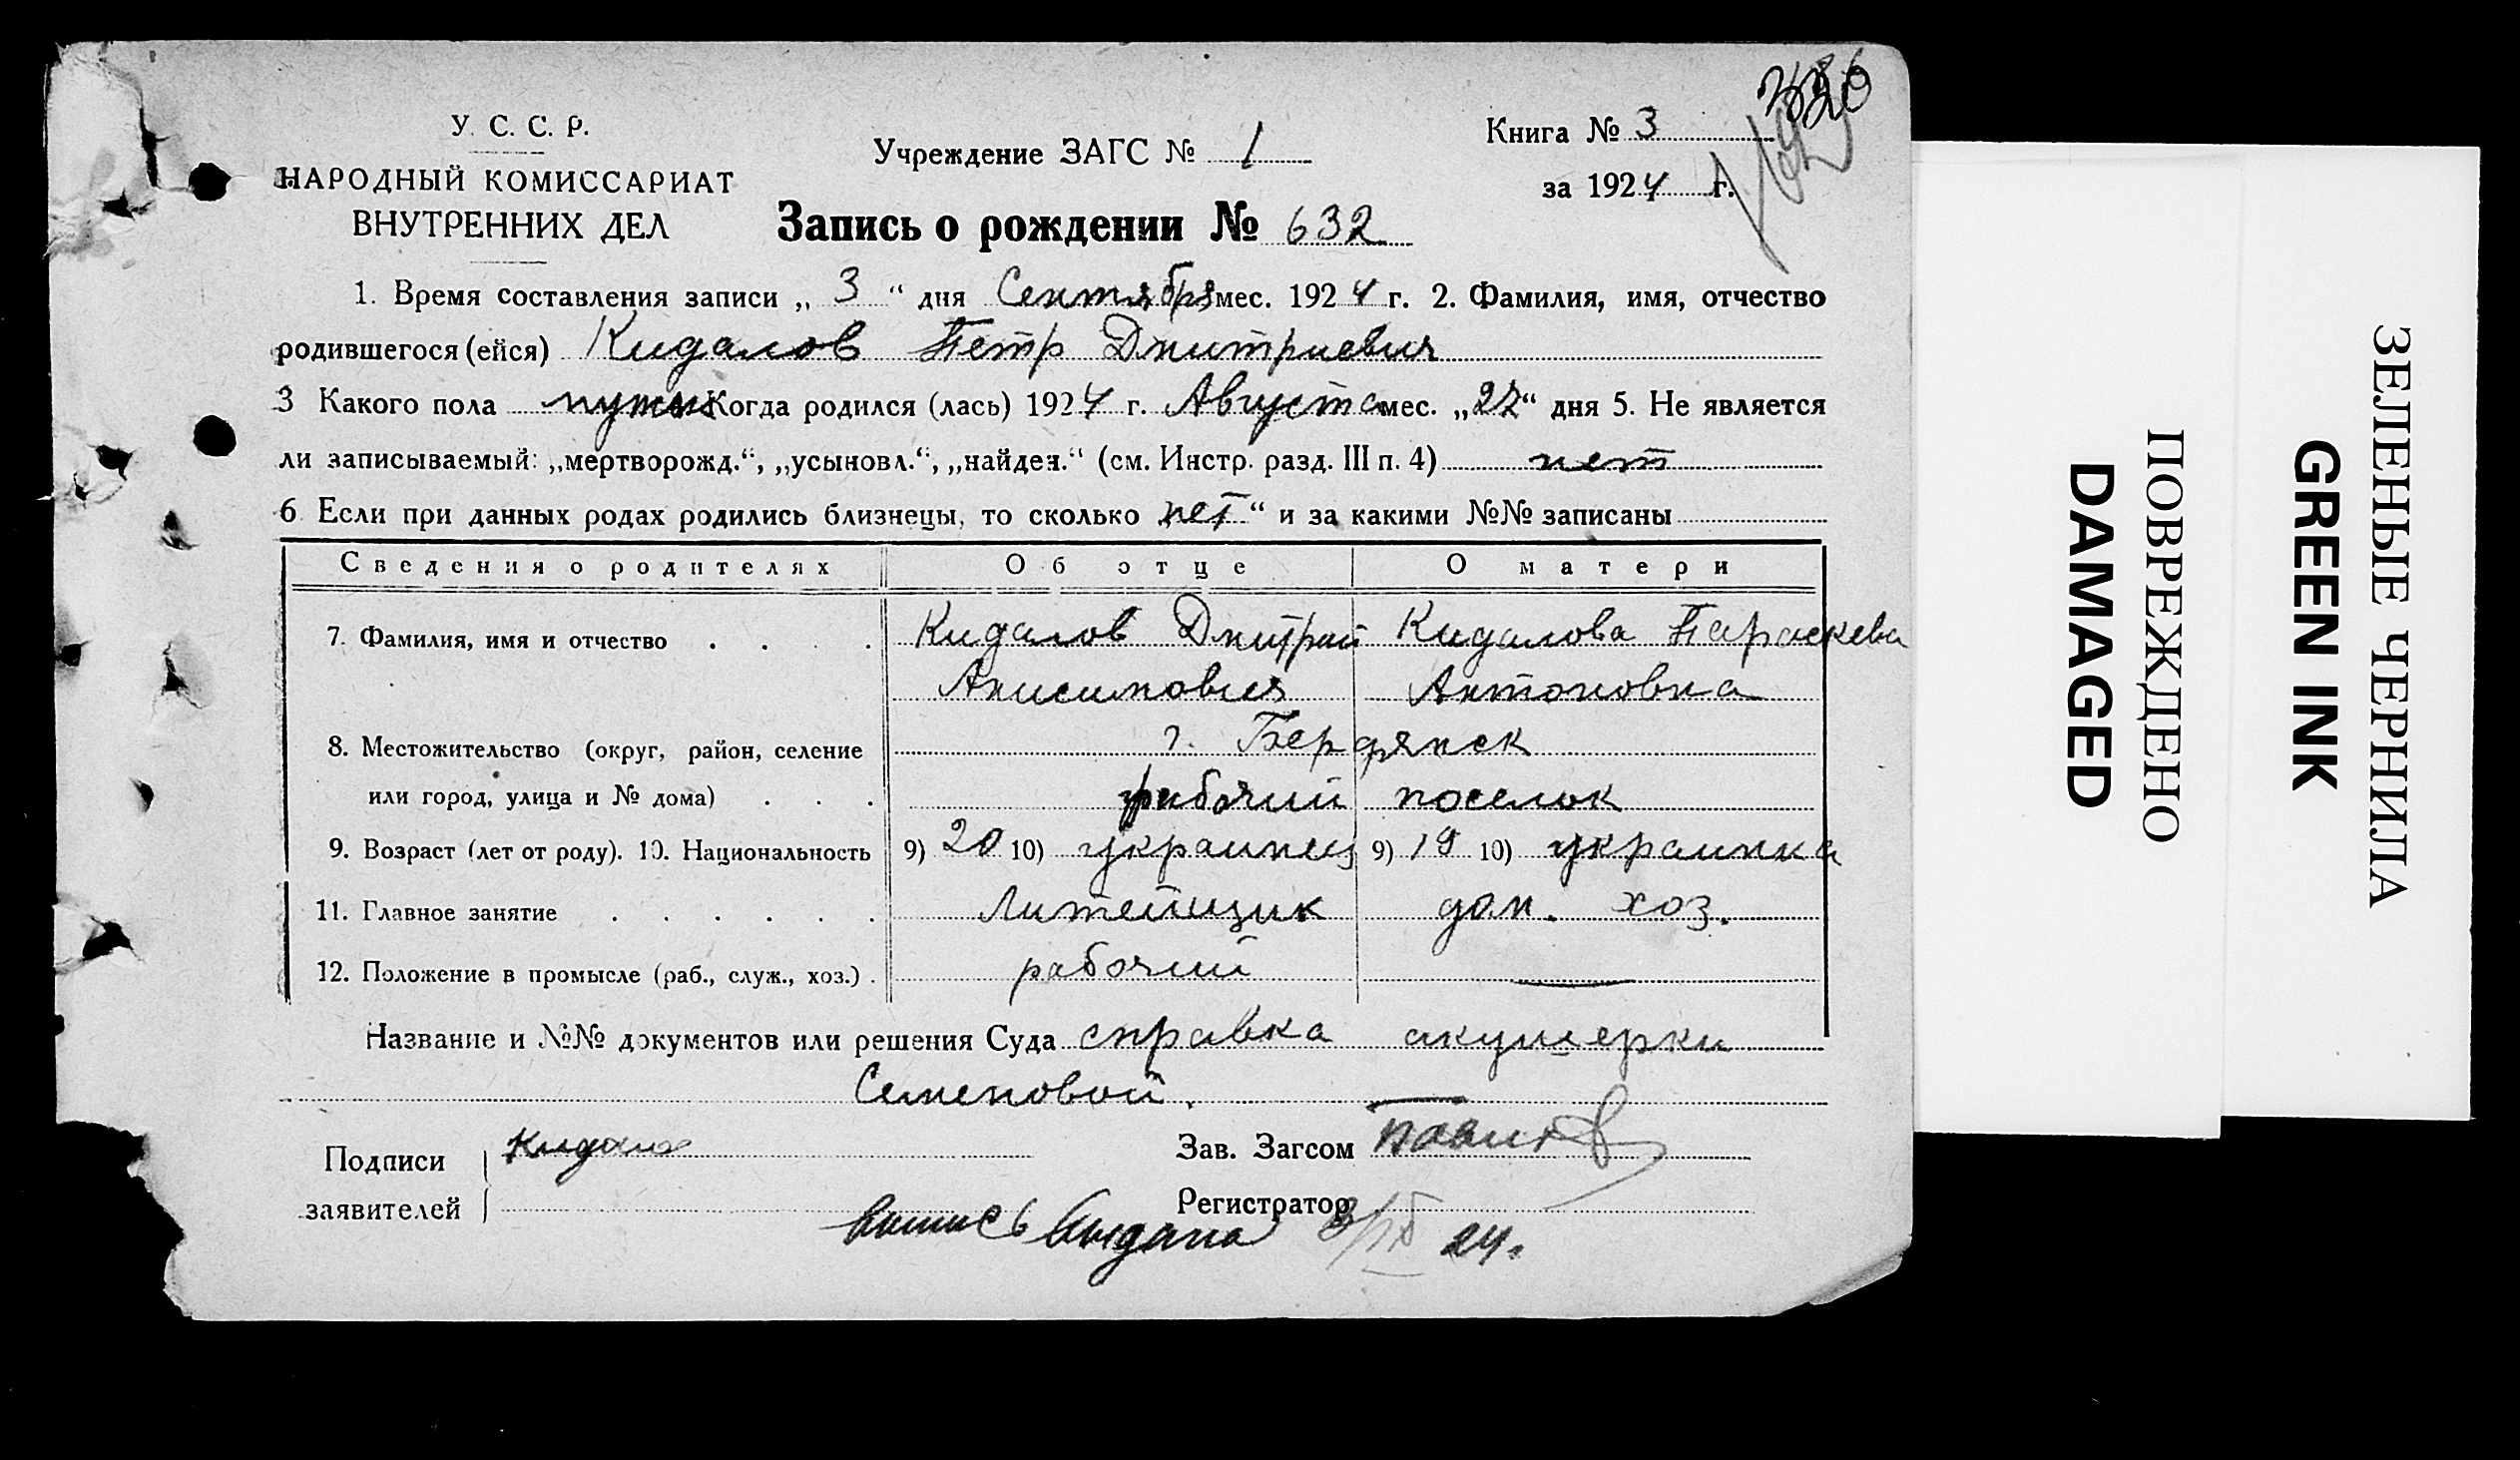 У. С. С. Р.
НАРОДНЫЙ КОМИССАРИАТ
ВНУТРЕННИХ ДЕЛ
Учреждение ЗАГС № 1
Книга № 3
за 1924 г.
Запись о рождении № 632
1. Время составления записи „ 3 “ дня Сентября мес. 1924 г. 2. Фамилия, имя, отчество
родившегося (ейся) Кидалов Петр Дмитриевич
3 Какого пола мужск Когда родился (лась) 1924 г. Августа мес. „27“ дня 5. Не является
ли записываемый: „мертворожд.“, „усыновл.“, „найден.“ (см. Инстр. разд. III п. 4) нет
6 Если при данных родах родились близнецы, то сколько нет “ и за какими №№ записаны
Сведения о родителях Об отце О матери
7. Фамилия, имя и отчество . . . . Кидалов Дмитрий Кидалова Параскева
Анисимович Антоновна
8. Местожительство (округ, район, селение г. Бердянск
или город, улица и № дома) . . . рабочий поселок
9. Возраст (лет от роду). 10. Национальность 9) 20 10) украинец 9) 19 10) украинка
11. Главное занятие . . . . . . Литейщик дом. хоз.
12. Положение в промысле (раб., служ., хоз.) . рабочий —
Название и №№ документов или решения Суда справка акушерки
Семеновой.
Подписи Кидало Зав. Загсом
заявителей Регистратор
выпись выдана 3/IX 24.
ПОВРЕЖДЕНО
DAMAGED
ЗЕЛЕНЫЕ ЧЕРНИЛА
GREEN INK